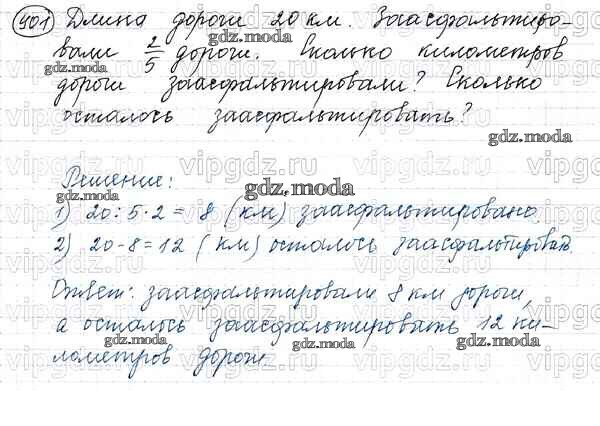 901 Длина дороги 20 км. Заасфальтиро-
вали 2/5 дороги. Сколько километров
дороги заасфальтировали? Сколько
осталось заасфальтировать?
Решение:
1) 20:5·2= 8 (км) заасфальтировано.
2) 20-8=12 (км) осталось заасфальтировать.
Ответ: заасфальтировали 8 км дороги,
а осталось заасфальтировать 12 ки-
лометров дороги.
gdz.moda
vipgdz.ru